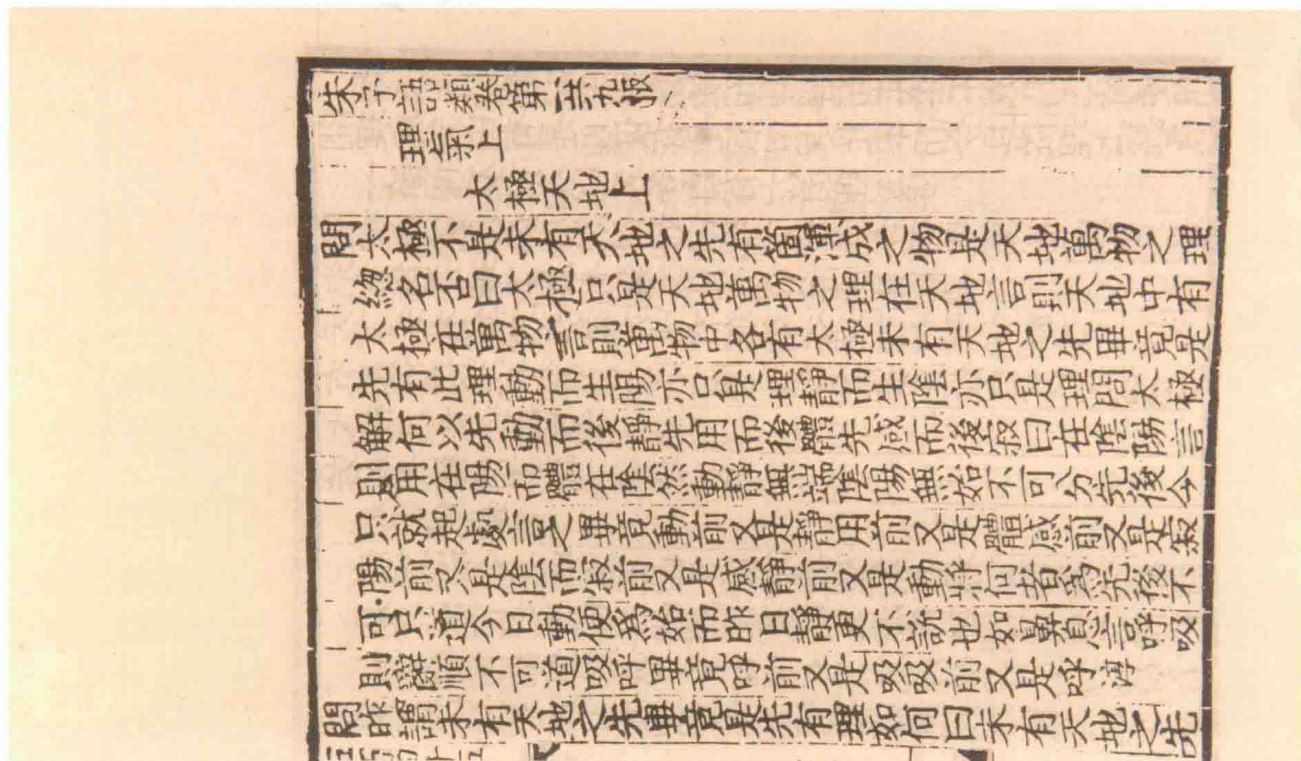 朱子語類卷第
理氣上
太極天地上
問太極不是未有天地之先有箇渾成之物是天地萬物之理
緫名否曰太極只是天地萬物之理在天地言則天地中有
太極在萬物言則萬物中各有太極未有天地之先畢竟是
先有此理動而生陽亦只是理靜而生陰亦只是理問太極
解何以先動而後靜先用而後體先感而後寂曰在陰陽言
則用在陽而體在陰然動靜無端陰陽無始不可分先後今
只就起處言之畢竟動前又是靜用前又是體感前又是寂
陽前又是陰而寂前又是感靜前又是動將何者爲先後不
可只道今日動便爲始而昨日靜更不說也如鼻息言呼吸
則辭順不可道吸呼畢竟呼前又是吸吸前又是呼淳
問昨謂未有天地之先畢竟是先有理如何曰未有天地之先